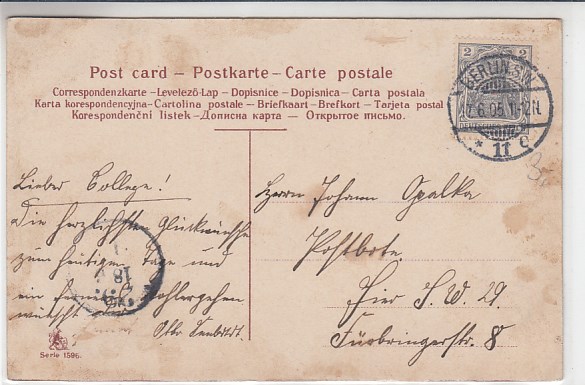 Post card – Postkarte – Carte postale
Correspondenzkarte – Levelező-Lap – Dopisnice – Dopisnica – Carta postala
Karta korespondencyjna – Cartolina postale – Briefkaart – Brefkort – Tarjeta postal
Korespondenční listek – Дописна карта – Открытое письмо.
2 2
BERLIN S.W.
.6.05.11-12N.
* 11 e
Lieber College!
Die herzlichsten Glückwünsche
zum heutigen Tage und
ein ferneres Wohlergehen
wünscht
Otto
Herrn Johann Opalka
Postbote
Hier S.W. 29.
Fürbringerstr. 8
Serie 1596.